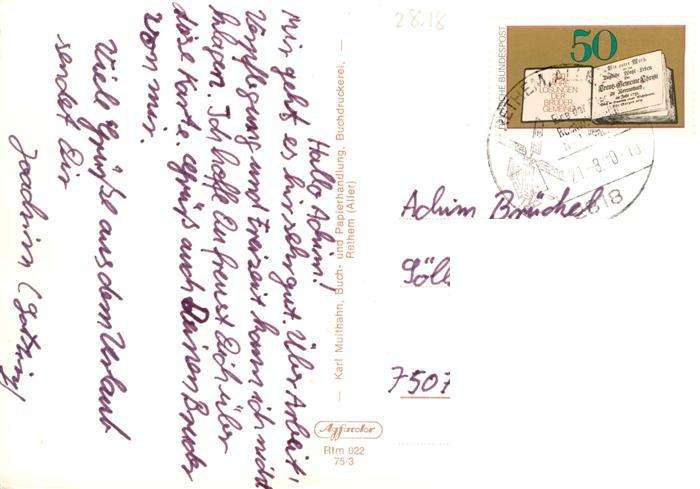 28.18
Hallo Achim!
Mir geht es hier sehr gut. Über Arbeit,
Verpflegung und Freizeit kann ich nicht
klagen. Ich hoffe Du freust Dich über
diese Karte. Grüß auch Deinen Bruder
von mir.
Viele Grüße aus dem Urlaub
sendet Dir
Joachim
— Karl Multhahn, Buch- und Papierhandlung, Buchdruckerei, —
Rethem (Aller)
Agfacolor
Rtm 922
75/3
DEUTSCHE BUNDESPOST
50
LOSUNGEN
DER
BRÜDER
GEMEINE
RETHEM
21.-8.80-18
818
Achim Brüchel
Söll
7507